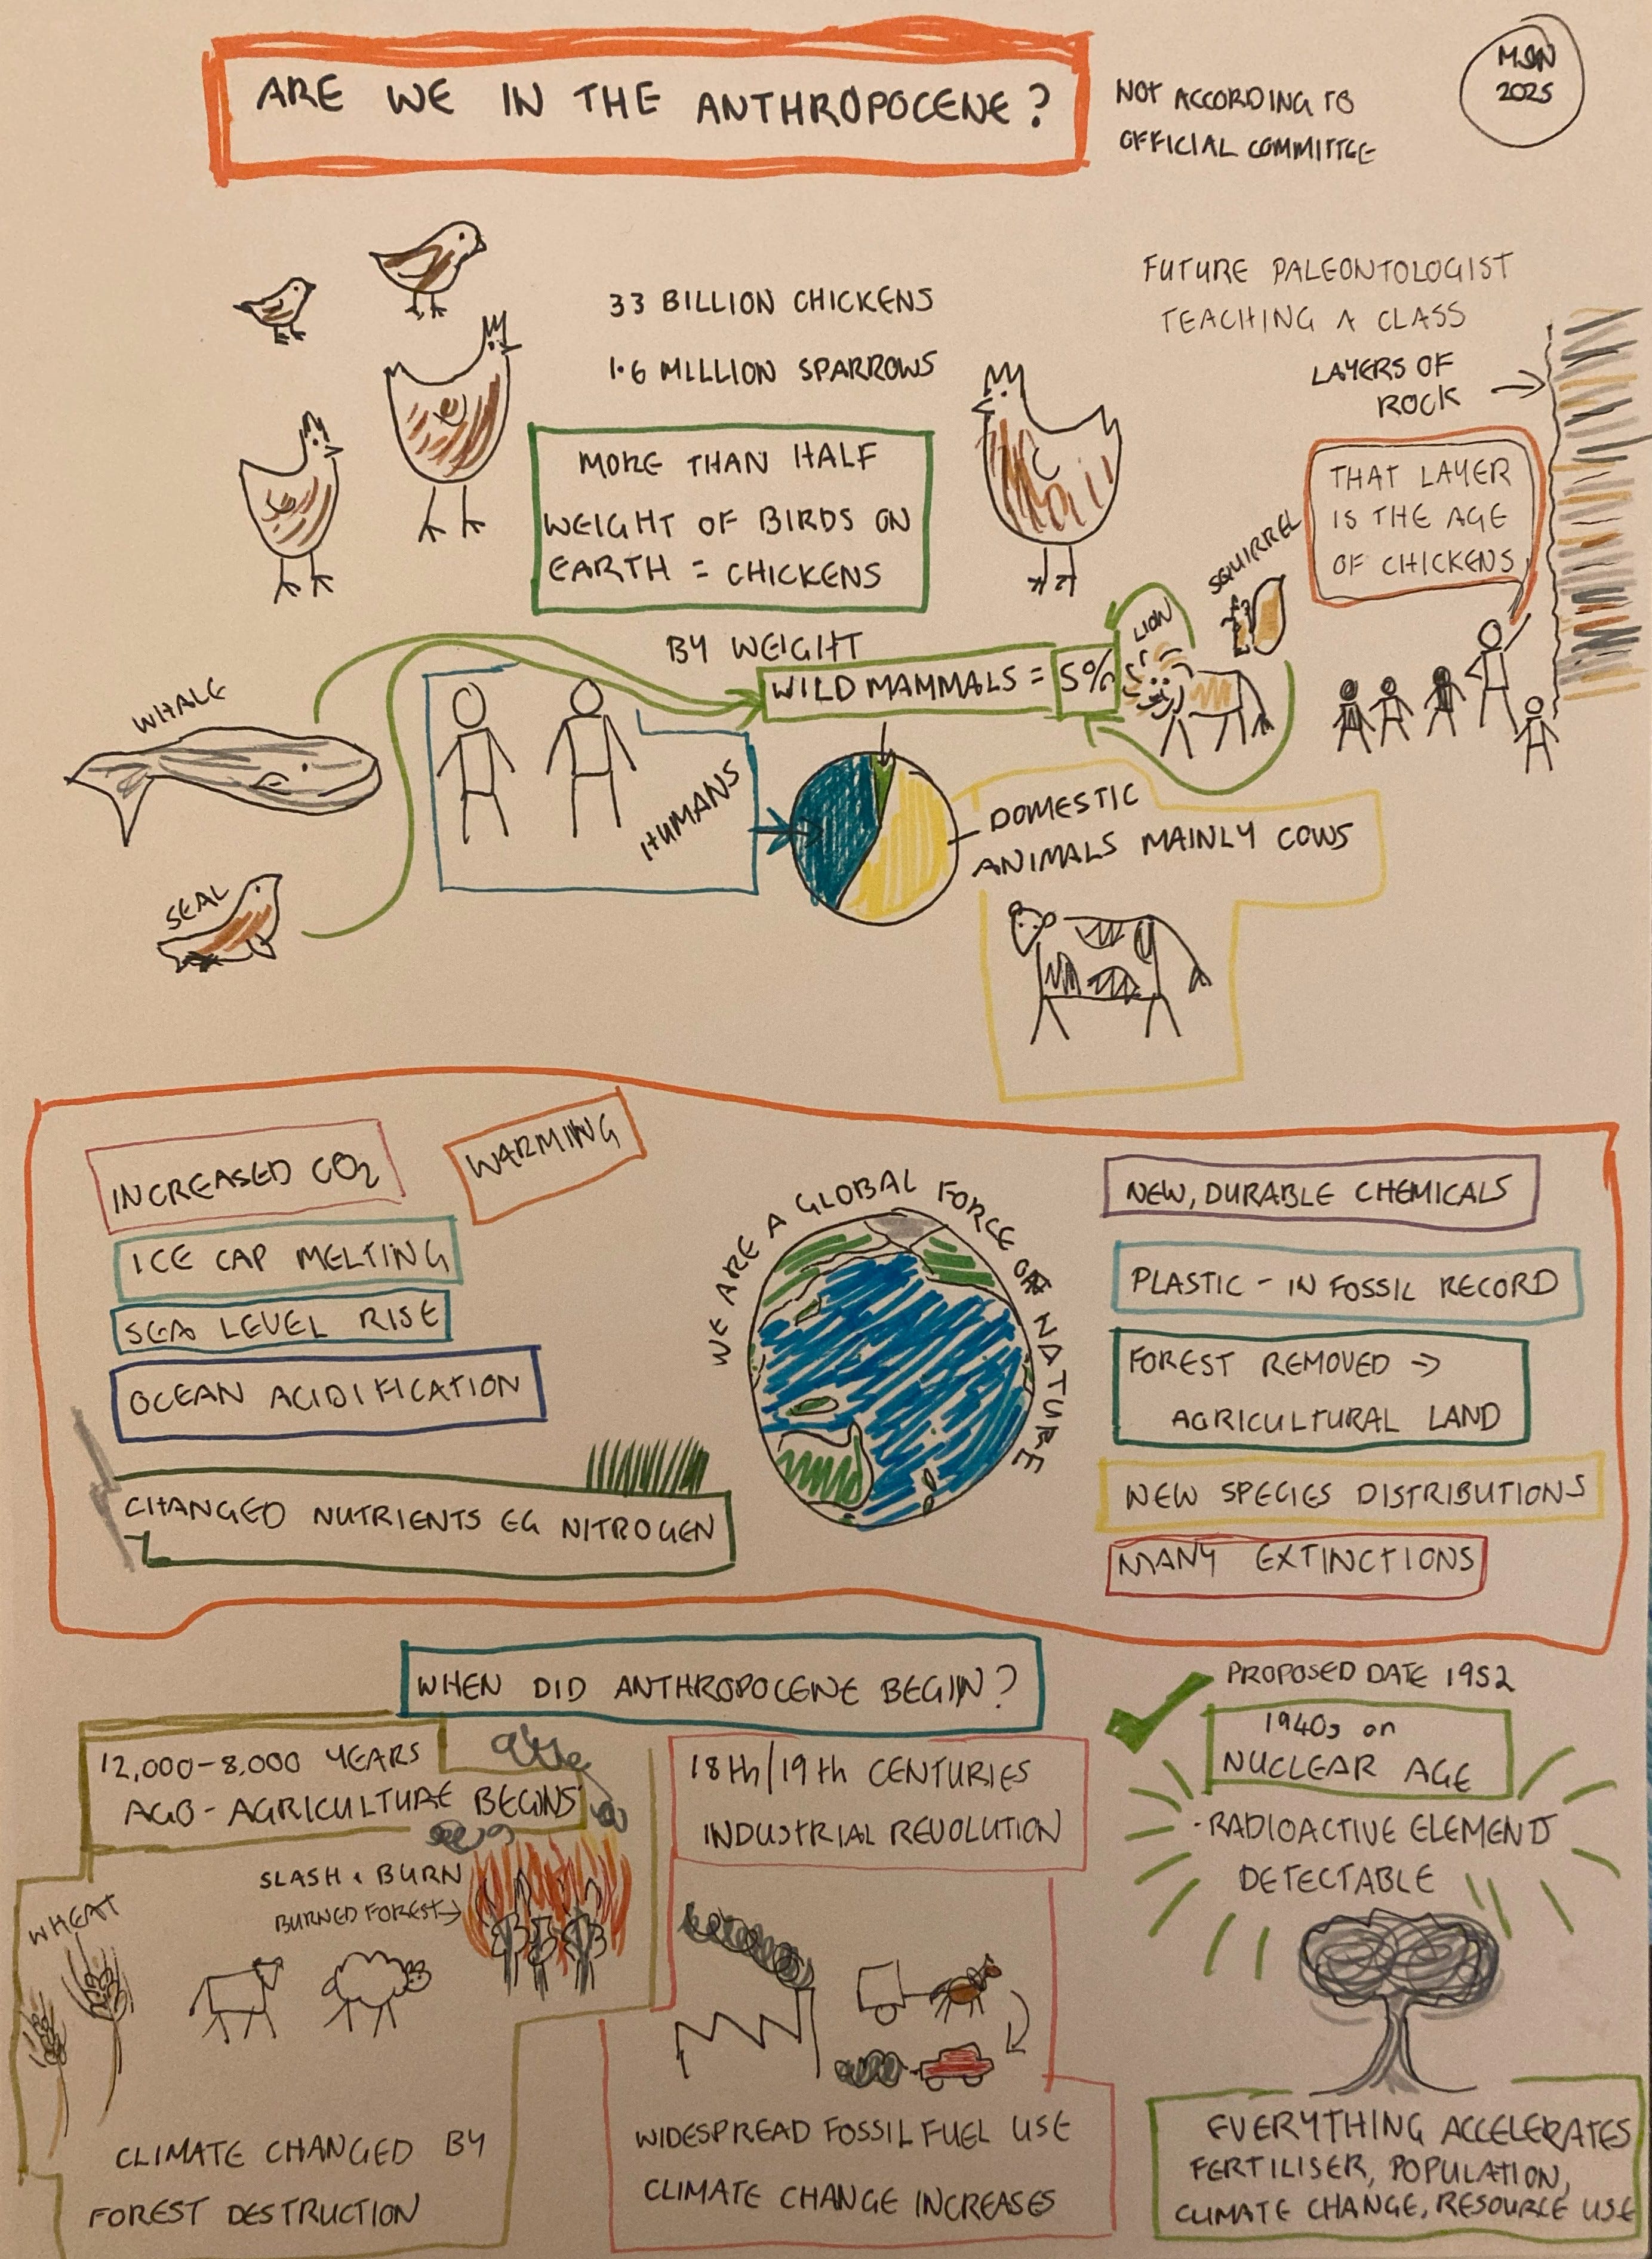 ARE WE IN THE ANTHROPOCENE?
NOT ACCORDING TO
OFFICIAL COMMITTEE
MSN
2025
33 BILLION CHICKENS
1.6 MILLION SPARROWS
MORE THAN HALF
WEIGHT OF BIRDS ON
EARTH = CHICKENS
FUTURE PALEONTOLOGIST
TEACHING A CLASS
LAYERS OF
ROCK
THAT LAYER
IS THE AGE
OF CHICKENS
BY WEIGHT
WILD MAMMALS = 5%
LION
SQUIRREL
WHALE
SEAL
HUMANS
DOMESTIC
ANIMALS MAINLY COWS
INCREASED CO2
WARMING
ICE CAP MELTING
SEA LEVEL RISE
OCEAN ACIDIFICATION
CHANGED NUTRIENTS EG NITROGEN
WE ARE A GLOBAL FORCE OF NATURE
NEW, DURABLE CHEMICALS
PLASTIC - IN FOSSIL RECORD
FOREST REMOVED →
AGRICULTURAL LAND
NEW SPECIES DISTRIBUTIONS
MANY EXTINCTIONS
WHEN DID ANTHROPOCENE BEGIN?
12,000-8,000 YEARS
AGO - AGRICULTURE BEGINS
SLASH & BURN
BURNED FOREST
WHEAT
CLIMATE CHANGED BY
FOREST DESTRUCTION
18th/19th CENTURIES
INDUSTRIAL REVOLUTION
WIDESPREAD FOSSIL FUEL USE
CLIMATE CHANGE INCREASES
PROPOSED DATE 1952
1940s on
NUCLEAR AGE
-RADIOACTIVE ELEMENTS
DETECTABLE
EVERYTHING ACCELERATES
FERTILISER, POPULATION,
CLIMATE CHANGE, RESOURCE USE